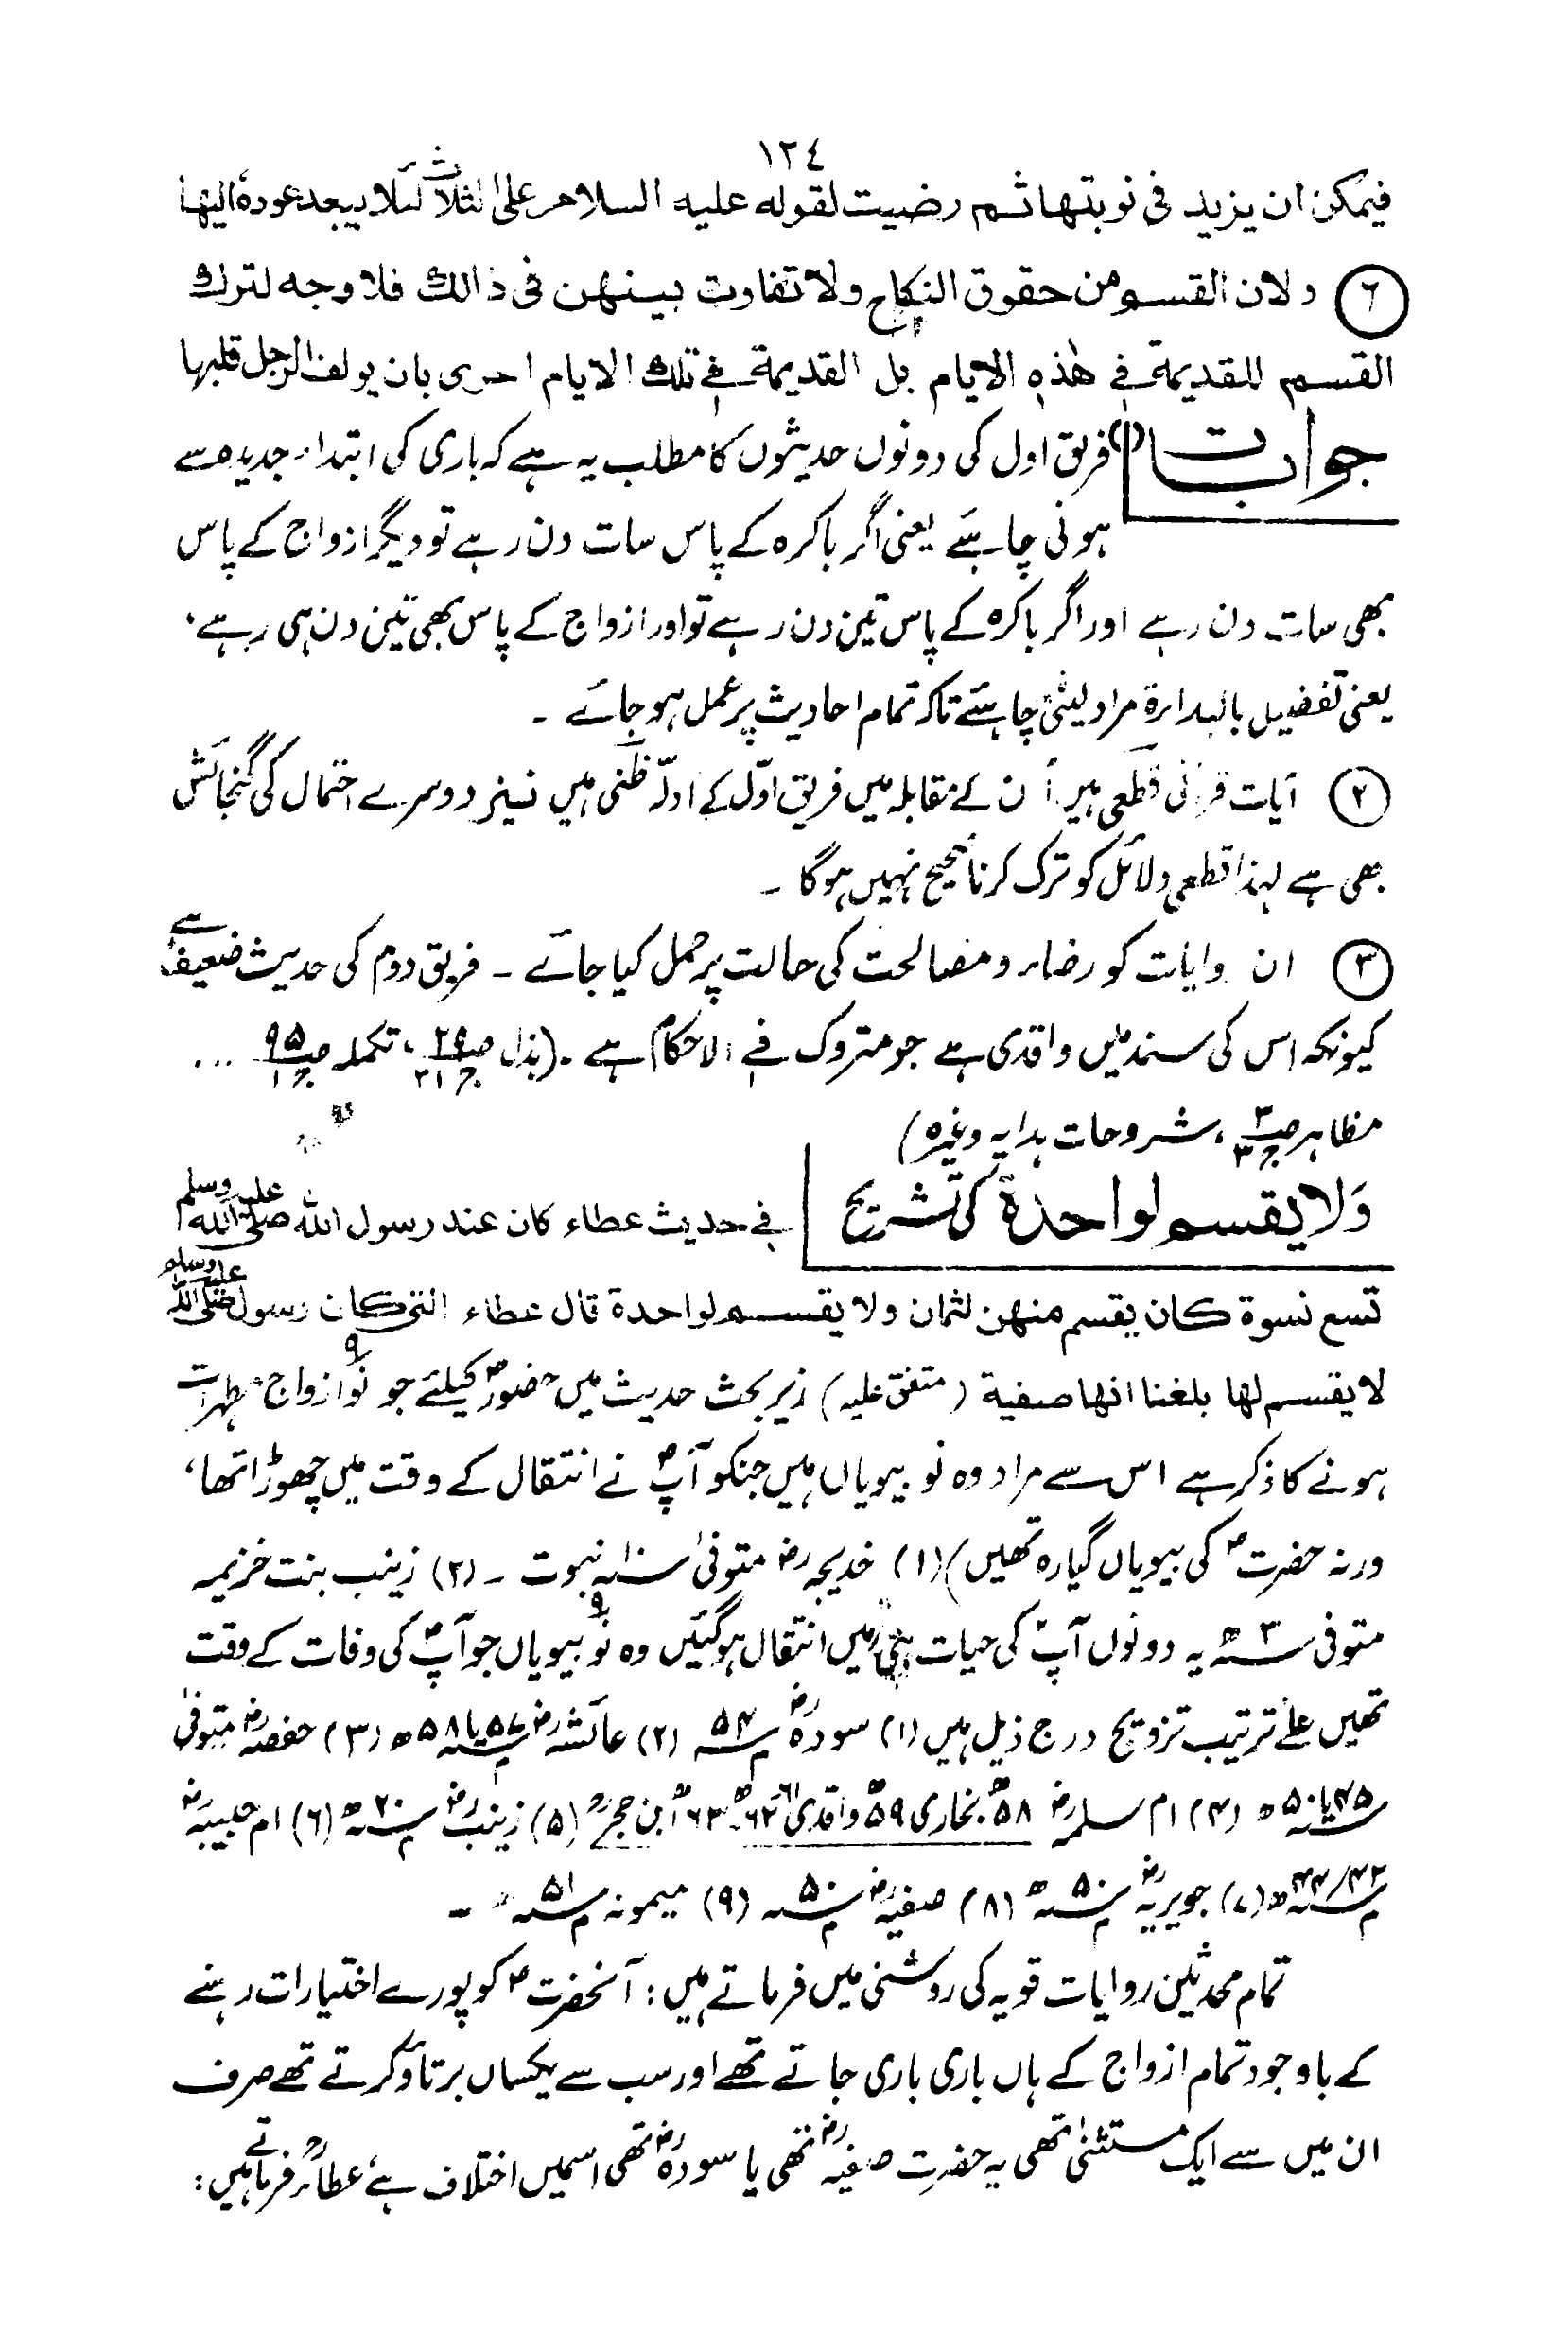 ١٢٤
فیمکن ان یزید فی نوبتها ثم رضیت لقوله علیه السلام علی الثلاث لئلا یبعد عوده الیها
(٦) ولان القسم من حقوق النکاح ولا تفاوت بینهن فی ذالك فلا وجه لترك
القسم للقدیمة فی هٰذه الایام بل القدیمة فی تلك الایام احری بان یولف الرجل قلبها
جوابات (۱) فریق اول کی دونوں حدیثوں کا مطلب یہ ہے کہ باری کی ابتداء جدیدہ سے
ہونی چاہئے یعنی اگر باکرہ کے پاس سات دن رہے تو دیگر ازواج کے پاس
بھی سات دن رہے اور اگر باکرہ کے پاس تین دن رہے تو اور ازواج کے پاس بھی تین دن ہی رہے،
یعنی تفضیل بالبداءۃ مراد لینی چاہئے تاکہ تمام احادیث پر عمل ہوجائے ۔
(۲) آیات قرآنی قطعی ہیں اُن کے مقابلہ میں فریق اوّل کے ادلّہ ظنی ہیں نیز دوسرے احتمال کی گنجائش
بھی ہے لہذا قطعی دلائل کو ترک کرنا صحیح نہیں ہوگا ۔
(۳) ان روایات کو رضاء و مصالحت کی حالت پر حمل کیا جائے ۔ فریق دوم کی حدیث ضعیف ہے
کیونکہ اس کی سند میں واقدی ہے جو متروک فی الاحکام ہے ۔ (بذل ، تکملہ ص ۹۵ ج ۱ ...
مظاہر ص ج ۳ ، شروحات ہدایہ وغیرہ)
وَلا یقسم لواحدة کی تشریح فی حدیث عطاء کان عند رسول الله صلی الله علیه وسلم
تسع نسوة کان یقسم منهن لثمان ولا یقسم لواحدة قال عطاء التی کان رسول صلی الله علیه وسلم
لا یقسم لها بلغنا انها صفیة (متفق علیه) زیر بحث حدیث میں حضورؐ کیلئے جو نو ۹ ازواج مطہرات
ہونے کا ذکر ہے اس سے مراد وہ نو بیویاں ہیں جنکو آپؐ نے انتقال کے وقت میں چھوڑا تھا،
ورنہ حضرتؐ کی بیویاں گیارہ تھیں) (۱) خدیجہ رض متوفیٰ سنہ ۱۰ نبوت ۔ (۲) زینب بنت خزیمہ
متوفی سنہ ۳ھ یہ دونوں آپؐ کی حیات ہی میں انتقال ہوگئیں وہ نو ۹ بیویاں جو آپؐ کی وفات کے وقت
تھیں علی ترتیب تزویج درج ذیل ہیں (۱) سودہ رض م سنہ ۵۴ (۲) عائشہ رض م سنہ ۵۷ یا ۵۸ھ (۳) حفصہ رض متوفیٰ
سنہ ۴۵ یا ۵۰ھ (۴) ام سلمہ رض ۵۸ھ بخاری ۵۹ھ واقدی ۶۱ ۶۲ھ ۶۳ھ ابن حجرؒ (۵) زینب رض م سنہ ۲۰ھ (۶) ام حبیبہ رض
م سنہ ۴۲/۴۴ھ (۷) جویریہ رض م سنہ ۵۰ھ (۸) صفیہ رض م سنہ ۵۰ (۹) میمونہ م سنہ ۵۱ ۔
تمام محدثین روایات قویہ کی روشنی میں فرماتے ہیں : آنحضرتؐ کو پورے اختیارات رہنے
کے باوجود تمام ازواج کے ہاں باری باری جاتے تھے اور سب سے یکساں برتاؤ کرتے تھے صرف
ان میں سے ایک مستثنیٰ تھی یہ حضرت صفیہ رض تھی یا سودہ رض تھی اسمیں اختلاف ہے عطاءؒ فرماتے ہیں :